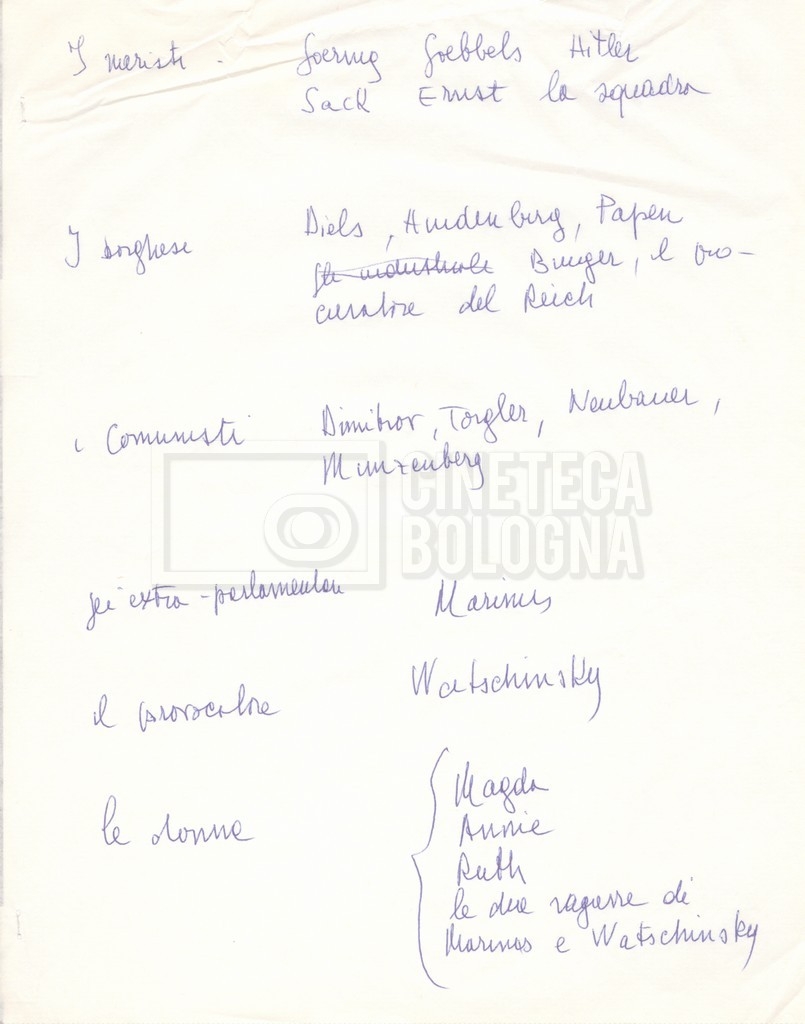 I nazisti - Goering Goebbels Hitler
Sack Ernst la squadra
I borghese Diels, Hindenburg, Papen
gli industriali Bunger, il pro-
curatore del Reich
i Comunisti Dimitrov, Torgler, Neubauer,
Munzenberg
CINETECA
BOLOGNA
gli extra-parlamentari Marinus
il provocatore Watschinsky
le donne Magda
Annie
Ruth
le due ragazze di
Marinos e Watschinsky